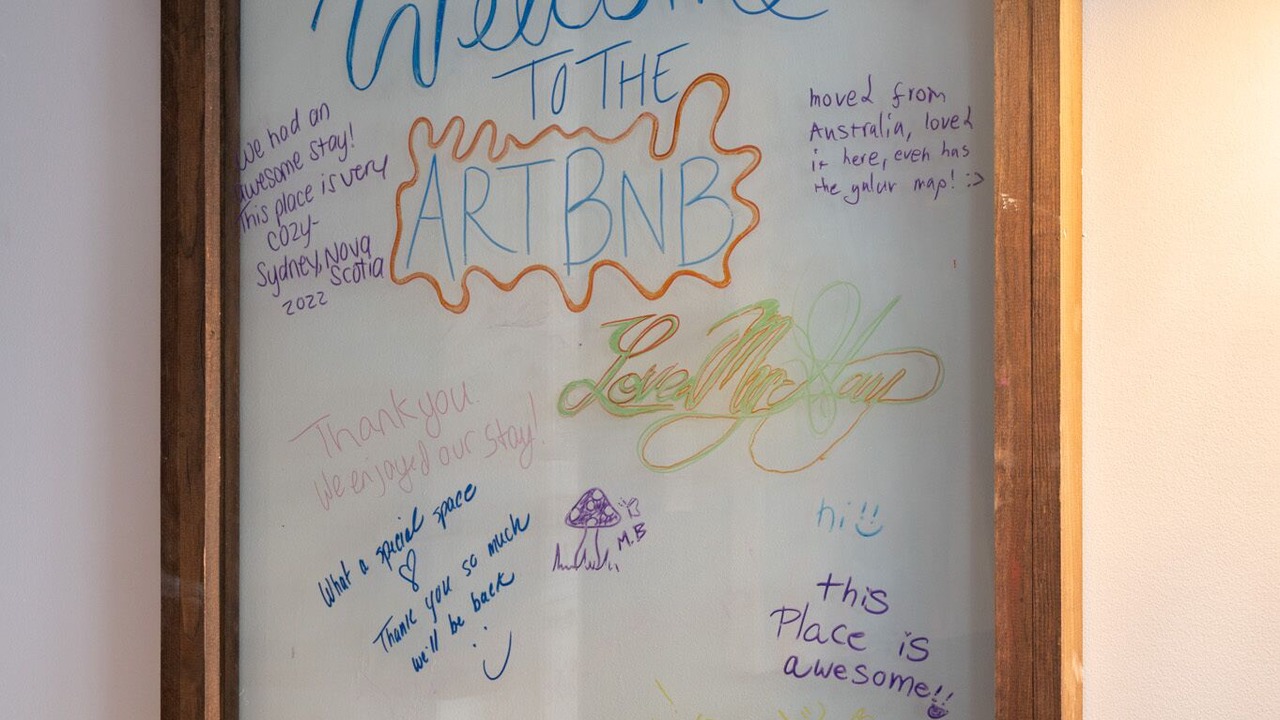 Welcome
TO THE
ARTBNB
We had an
awesome stay!
This place is very
cozy-
Sydney, Nova
Scotia
2022
moved from
Australia, loved
it here, even has
the map! :>
Loved My Stay
Thank you.
We enjoyed our stay!
What a special space
Thank you so much
we'll be back
M.B
hi!
this
Place is
awesome!!